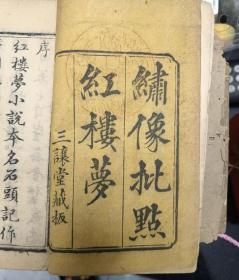 繡像批點
紅樓夢
三讓堂藏板
序
紅樓夢小說本名石頭記作